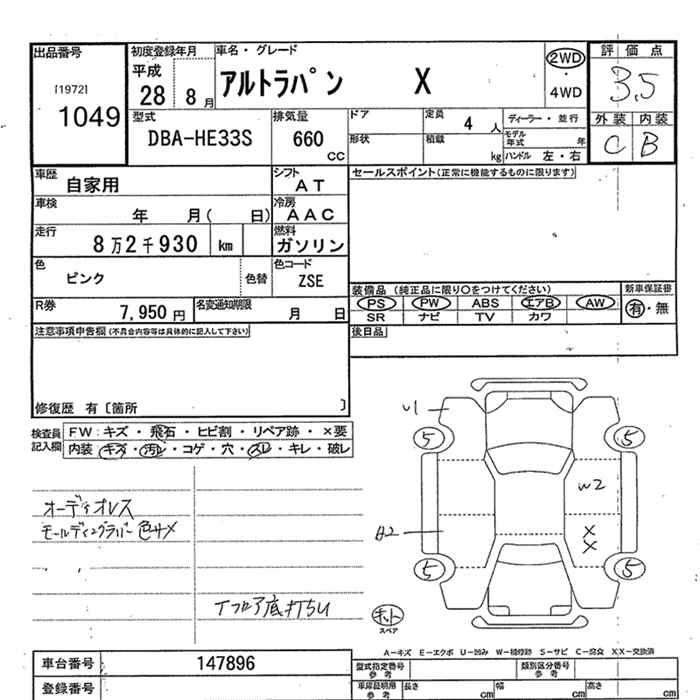 出品番号
[1972]
1049
初度登録年月
平成
28 8月
車名・グレード
アルトラパン X
2WD
・
4WD
評価点
3.5
外装 内装
C B
型式
DBA-HE33S
排気量
660
CC
ドア
形状
定員
4 人
積載
kg
ディーラー・並行
モデル年式 年
ハンドル 左・右
車歴
自家用
シフト
AT
車検
年 月( 日)
冷房
AAC
走行
8万2千930 km
燃料
ガソリン
色
ピンク
色替
色コード
ZSE
R券
7,950円
名変通知期限
月 日
セールスポイント(正常に機能するものに限ります)
装備品 (純正品に限り〇をつけてください)
新車保証書
PS PW ABS エアB AW
有・無
SR ナビ TV カワ
注意事項申告欄(不具合内容等は具体的に記入して下さい)
後日品
修復歴 有〔箇所 〕
検査員記入欄
FW:キズ・飛石・ヒビ割・リペア跡・×要
内装 キズ・汚レ・コゲ・穴・スレ・キレ・破レ
オーディオレス
モールディングラバー色サメ
下フロア底打ちU
U1
5
5
W2
A2
X
X
5
5
キット
スペア
A-キズ E-エクボ U-凹み W-補修跡 S-サビ C-腐食 XX-交換済
車台番号
147896
登録番号
型式指定番号
参考
類別区分番号
参考
車庫証明用
参考
長さ cm
幅 cm
高さ cm